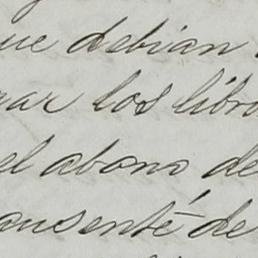 ue debian
rar los libro
el abono de
ausenté de